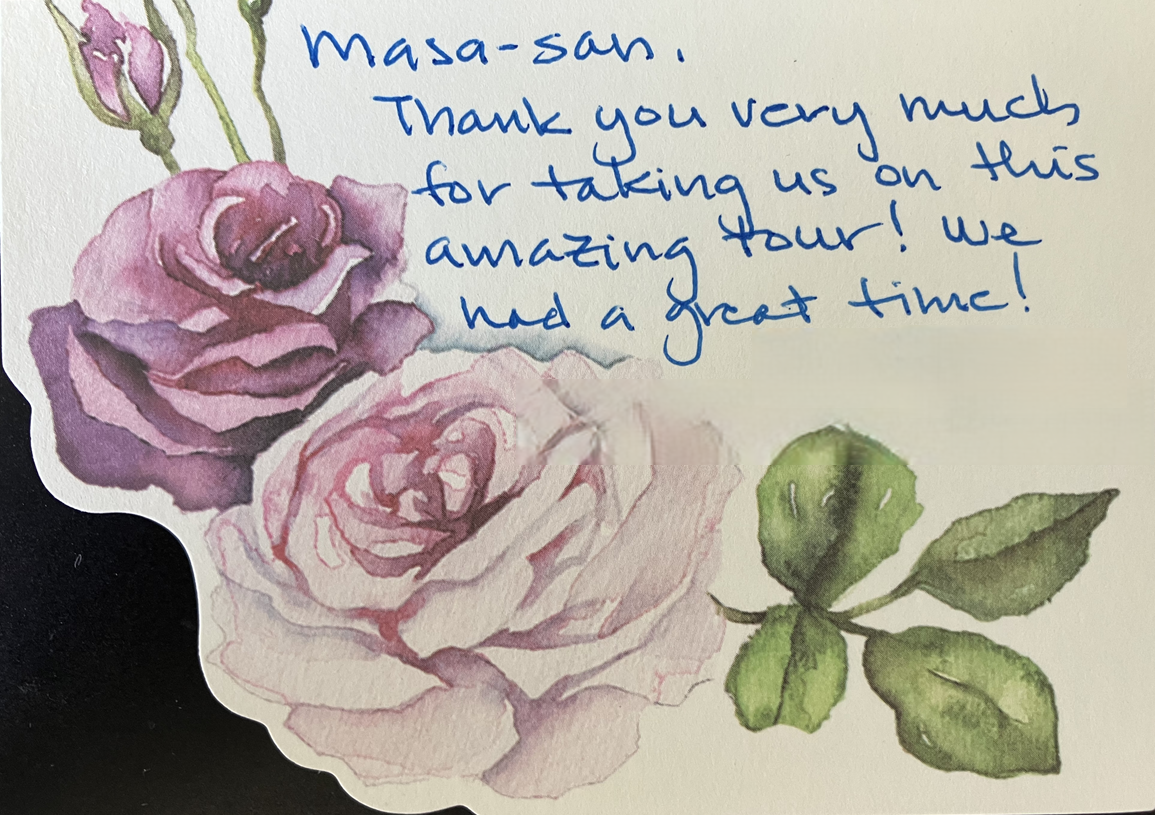 Masa-san.
Thank you very much
for taking us on this
amazing tour! We
had a great time!